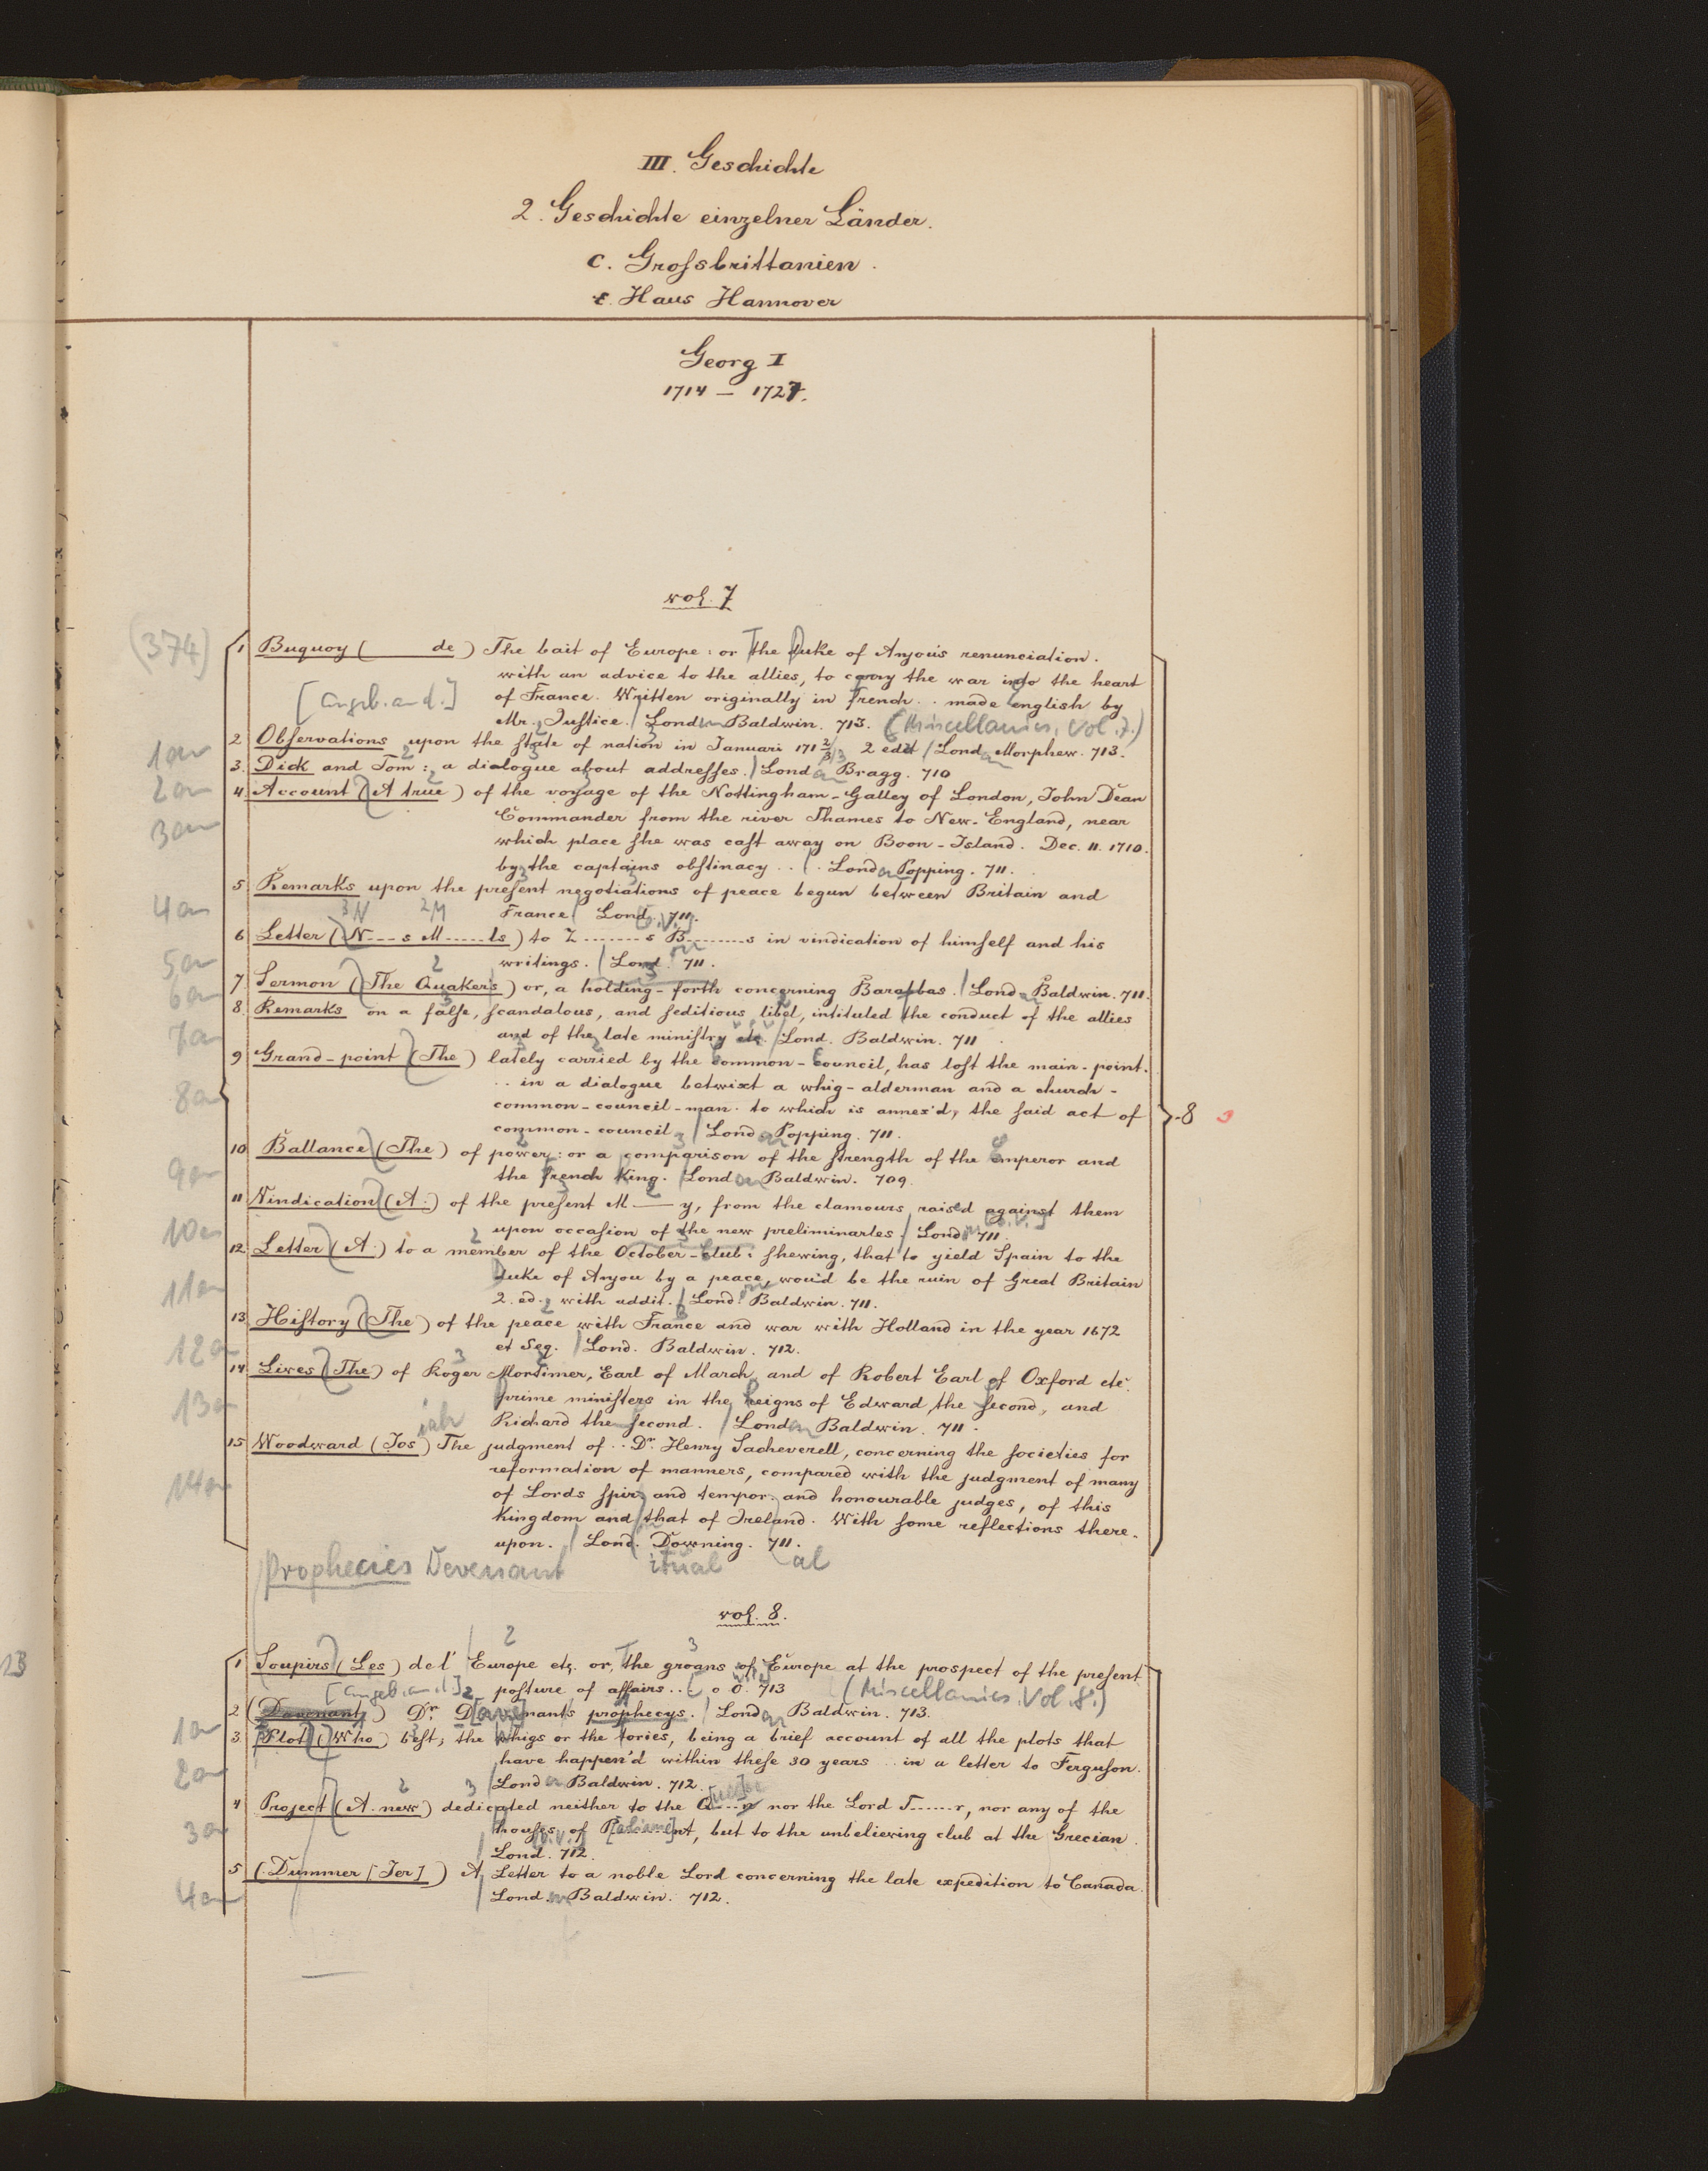 III. Geschichte
2. Geschichte einzelner Länder.
c. Grofsbrittanien.
ε. Haus Hannover
Georg I
1714 — 1727.
vol. 7
(374)
1 Buquoy ( de) The bait of Europe: or the Duke of Anjou's renunciation.
with an advice to the allies, to carry the war into the heart
[angeb. an d.] of France. Written originally in french.. made english by
Mr. Justice. Lond. Baldwin. 713. (Miscellanies, Vol. 7.)
1an 2 Observations upon the state of nation in Januari 171 2/3 2 edit Lond. Morphew. 713.
2an 3. Dick and Tom: a dialogue about addresses. Lond Bragg. 710
3an 4. Account (A true) of the voyage of the Nottingham-Galley of London, John Dean
Commander from the river Thames to New-England, near
which place she was cast away on Boon-Island. Dec. 11. 1710.
by the captains obstinacy .. Lond. Popping. 711.
4an 5 Remarks upon the present negotiations of peace begun between Britain and
France Lond. 711.
5an 6 Letter (N----s M------ts) to Z -------s B.--------s in vindication of himself and his
writings. Lond. 711.
6an 7 Sermon (The Quaker's) or, a holding-forth concerning Barabbas. Lond. Baldwin. 711.
7an 8. Remarks on a false, scandalous, and seditious libel, intituled the conduct of the allies
and of the late ministry etc. Lond. Baldwin. 711
8an 9 Grand-point (The) lately carried by the common-council, has lost the main-point.
.. in a dialogue betwixt a whig-alderman and a church-
common-council-man. to which is annex'd, the said act of
common-council Lond Popping. 711.
8
9an 10 Ballance (The) of power: or a comparison of the strength of the emperor and
the french King. Lond Baldwin. 709.
10an 11 Vindication (A.) of the present M——y, from the clamours rais'd against them
upon occasion of the new preliminarles Lond 711.
11an 12. Letter (A.) to a member of the October-Club: shewing, that to yield Spain to the
Duke of Anjou by a peace, wou'd be the ruin of Great Britain
2. ed. with addit. Lond. Baldwin. 711.
12an 13 History (The) of the peace with France and war with Holland in the year 1672
et seq. Lond. Baldwin. 712.
13an 14 Lives (The) of Roger Mortimer, Earl of March, and of Robert Earl of Oxford etc.
prime ministers in the reigns of Edward the second, and
Richard the second. Lond. Baldwin. 711.
14an 15 Woodward (Jos iah) The judgment of.. Dr. Henry Sacheverell, concerning the societies for
reformation of manners, compared with the judgment of many
of Lords spir. and tempor. and honourable judges, of this
Kingdom and that of Ireland. With some reflections there-
upon. Lond. Downing. 711.
Prophecies Devenant itual al
vol. 8.
1 Soupirs (Les) de l' Europe etc. or, the groans of Europe at the prospect of the present
[angeb. an d.] posture of affairs.. o O. 713 (Miscellanies. Vol. 8.)
1an 2 (Davenant) Dr. D[ave]nants prophecys. Lond. Baldwin. 713.
2an 3. Plot (Who) best; the whigs or the tories, being a brief account of all the plots that
have happen'd within these 30 years .. in a letter to Ferguson.
Lond Baldwin. 712.
3an 4 Project (A new) dedicated neither to the Q---n nor the Lord T------r, nor any of the
houses of P[arliame]nt, but to the unbelieving club at the Grecian.
Lond. 712.
4an 5 (Dummer [Jer]) A Letter to a noble Lord concerning the late expedition to Canada.
Lond. Baldwin. 712.
13